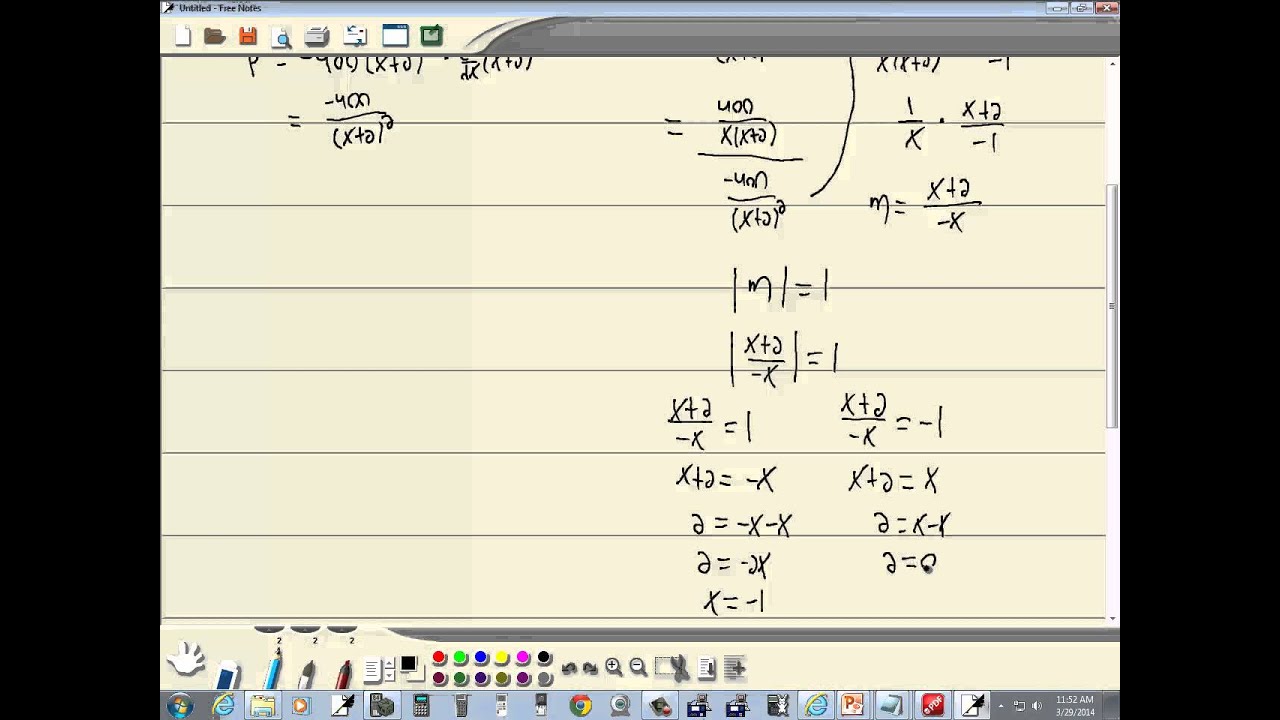 Untitled - Free Notes
= -400
(x+2)²
= 400
x(x+2)
-400
(x+2)²
x(x+2) -1
1/x · x+2/-1
m = x+2/-x
|m| = 1
|x+2/-x| = 1
x+2/-x = 1
x+2 = -x
2 = -x-x
2 = -2x
x = -1
x+2/-x = -1
x+2 = x
2 = x-x
2 = 0
2 2 2
11:52 AM
3/29/2014